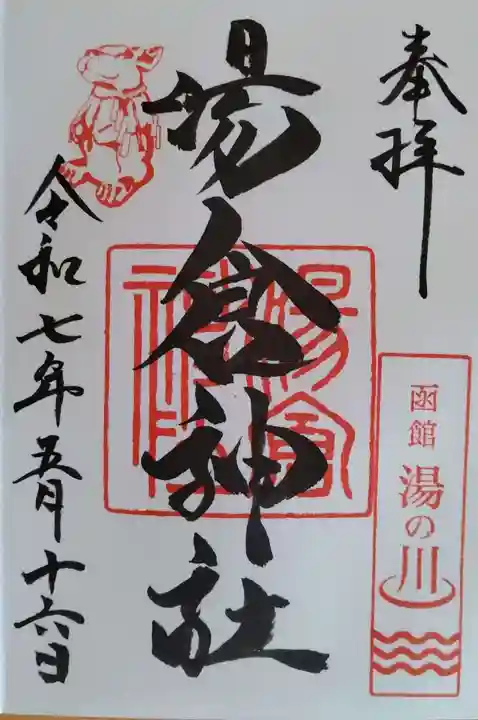 奉拝
函館 湯の川
湯倉神社
令和七年五月十六日